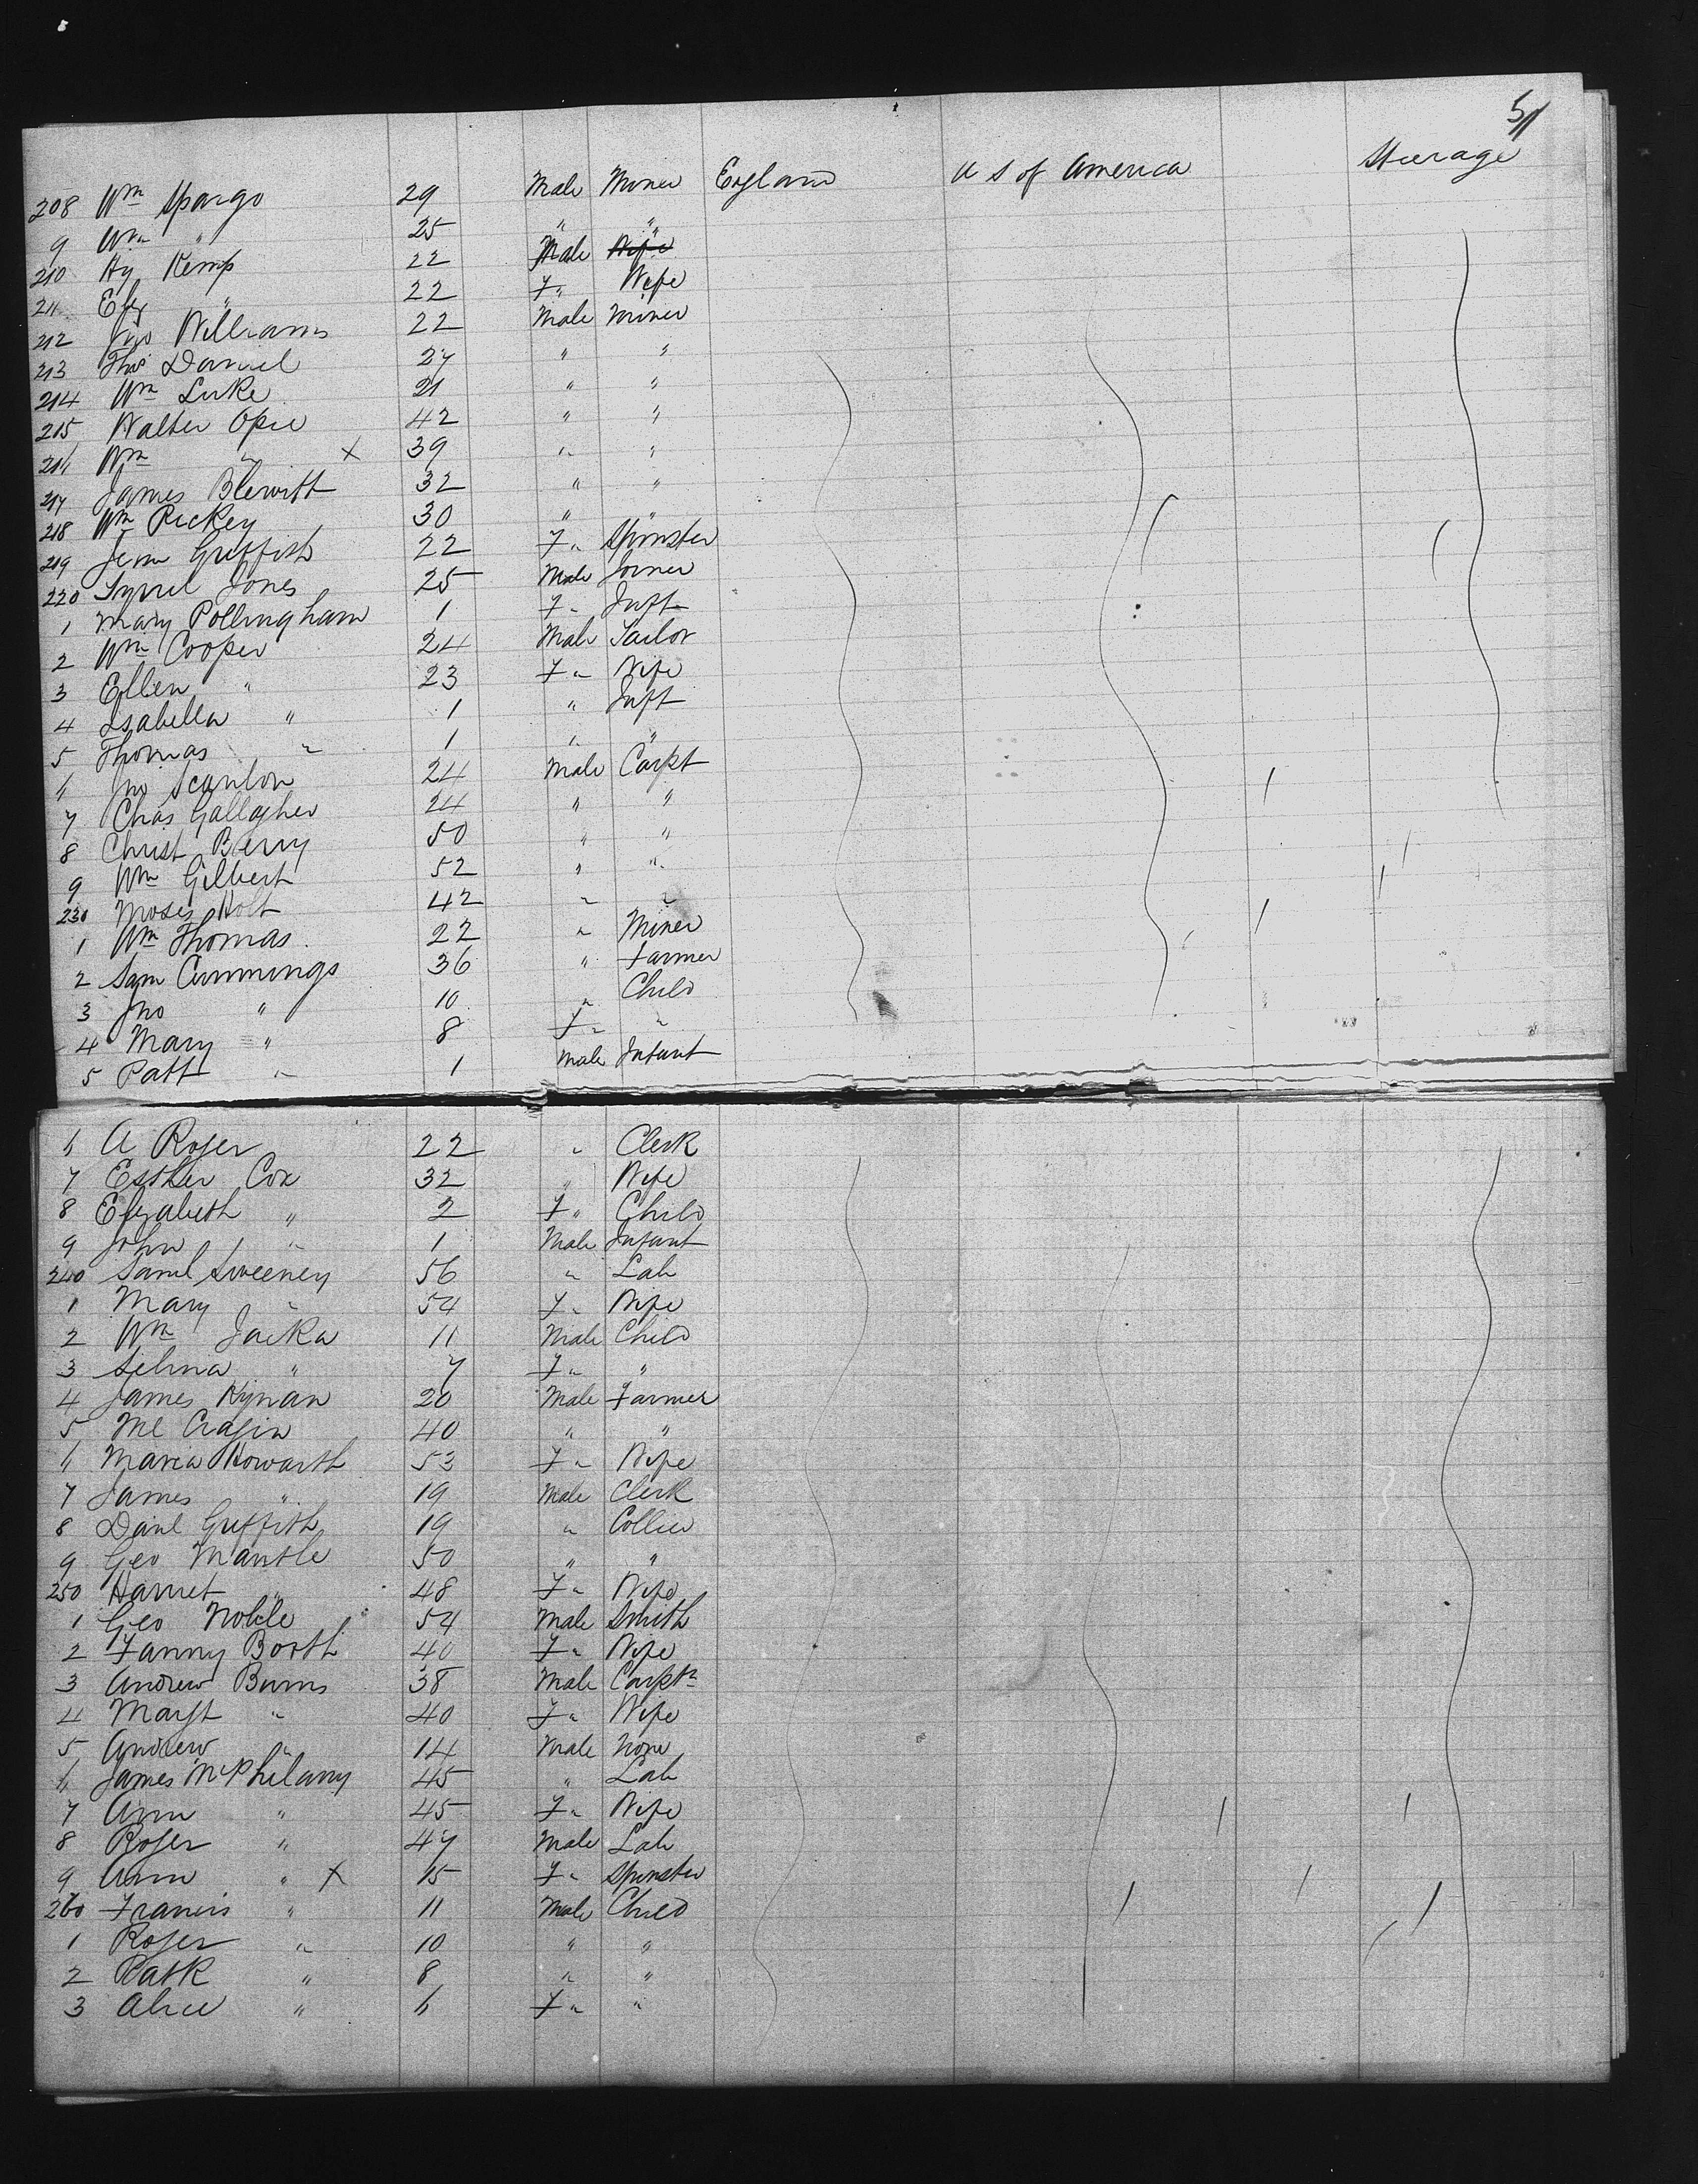 5/
208 Wm Spargo 29 Male Miner England U S of America Steerage
9 Wm " 25 " "
210 Hy Kemp 22 Male Wife
211 Eliz " 22 F " Wife
212 Jno Williams 22 Male Miner
213 Thos Daniel 27 " "
214 Wm Luke 21 " "
215 Walter Opie 42 " "
216 Wm " X 39 " "
217 James Blewitt 32 " "
218 Wm Rickey 30 " "
219 Jem Griffith 22 F " Spinster
220 Jones 25 Male Joiner
1 Mary Pollingham 1 F " Inft
2 Wm Cooper 24 Male Tailor
3 Ellen " 23 F " Wife
4 Isabella " 1 " Inft
5 Thomas " 1 " "
6 Jno Scanlon 24 Male Carpt
7 Chas Gallagher 24 " "
8 Christ Berry 50 " "
9 Wm Gilbert 52 " "
230 Moses Holt 42 " "
1 Wm Thomas 22 " Miner
2 Sam Cummings 36 " Farmer
3 Jno " 10 " Child
4 Mary " 8 F " "
5 Patt " 1 Male Infant
6 A Roger 22 " Clerk
7 Esther Cox 32 " Wife
8 Elizabeth " 2 F " Child
9 John " 1 Male Infant
240 Saml Sweeney 56 " Lab
1 Mary " 54 F " Wife
2 Wm Jacka 11 Male Child
3 Selina " 7 F " "
4 James Kynan 20 Male Farmer
5 Ml Cragin 40 " "
6 Maria Howarth 53 F " Wife
7 James " 19 Male Clerk
8 Danl Griffith 19 " Collier
9 Geo Mantle 50 " "
250 Harriet " 48 F " Wife
1 Geo Noble 54 Male Smith
2 Fanny Booth 40 F " Wife
3 Andrew Burns 38 Male Carptr
4 Margt " 40 F " Wife
5 Andrew " 14 Male None
6 James McPhilany 45 " Lab
7 Ann " 45 F " Wife
8 Roger " 47 Male Lab
9 Ann " X 15 F " Spinster
260 Francis " 11 Male Child
1 Roger " 10 " "
2 Patk " 8 " "
3 Alice " 6 F " "